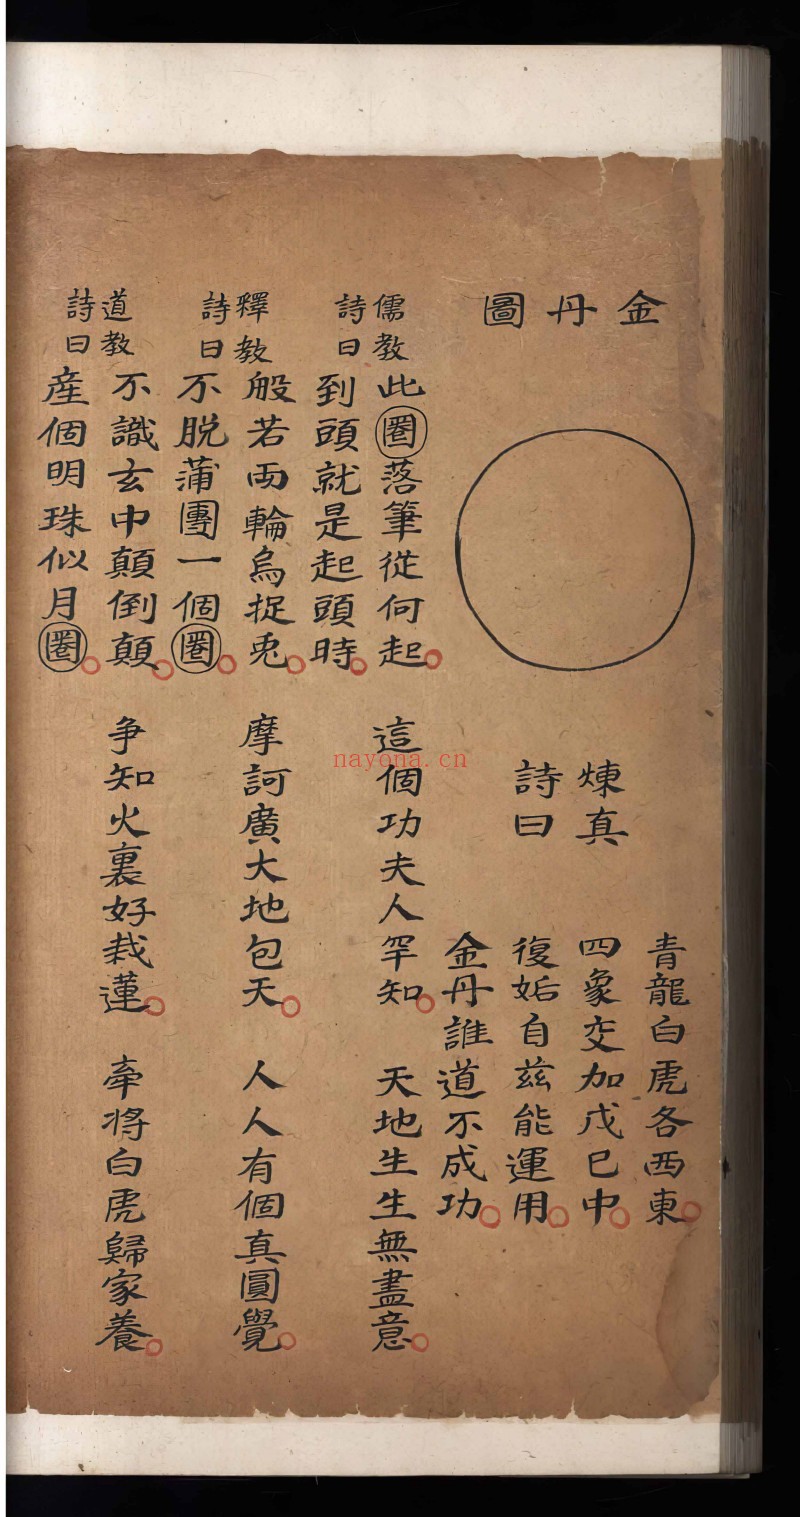 金丹圖
煉真
詩曰
青龍白虎各西東
四象交加戊巳中
復姤自茲能運用
金丹誰道不成功
儒教
詩曰
此圈落筆從何起 這個功夫人罕知 天地生生無盡意
到頭就是起頭時
釋教
詩曰
般若兩輪烏捉兎 摩訶廣大地包天 人人有個真圓覺
不脱蒲團一個圈
道教
詩曰
不識玄中顛倒顛 争知火裏好栽蓮 牽將白虎歸家養
産個明珠似月圈
nayona.cn